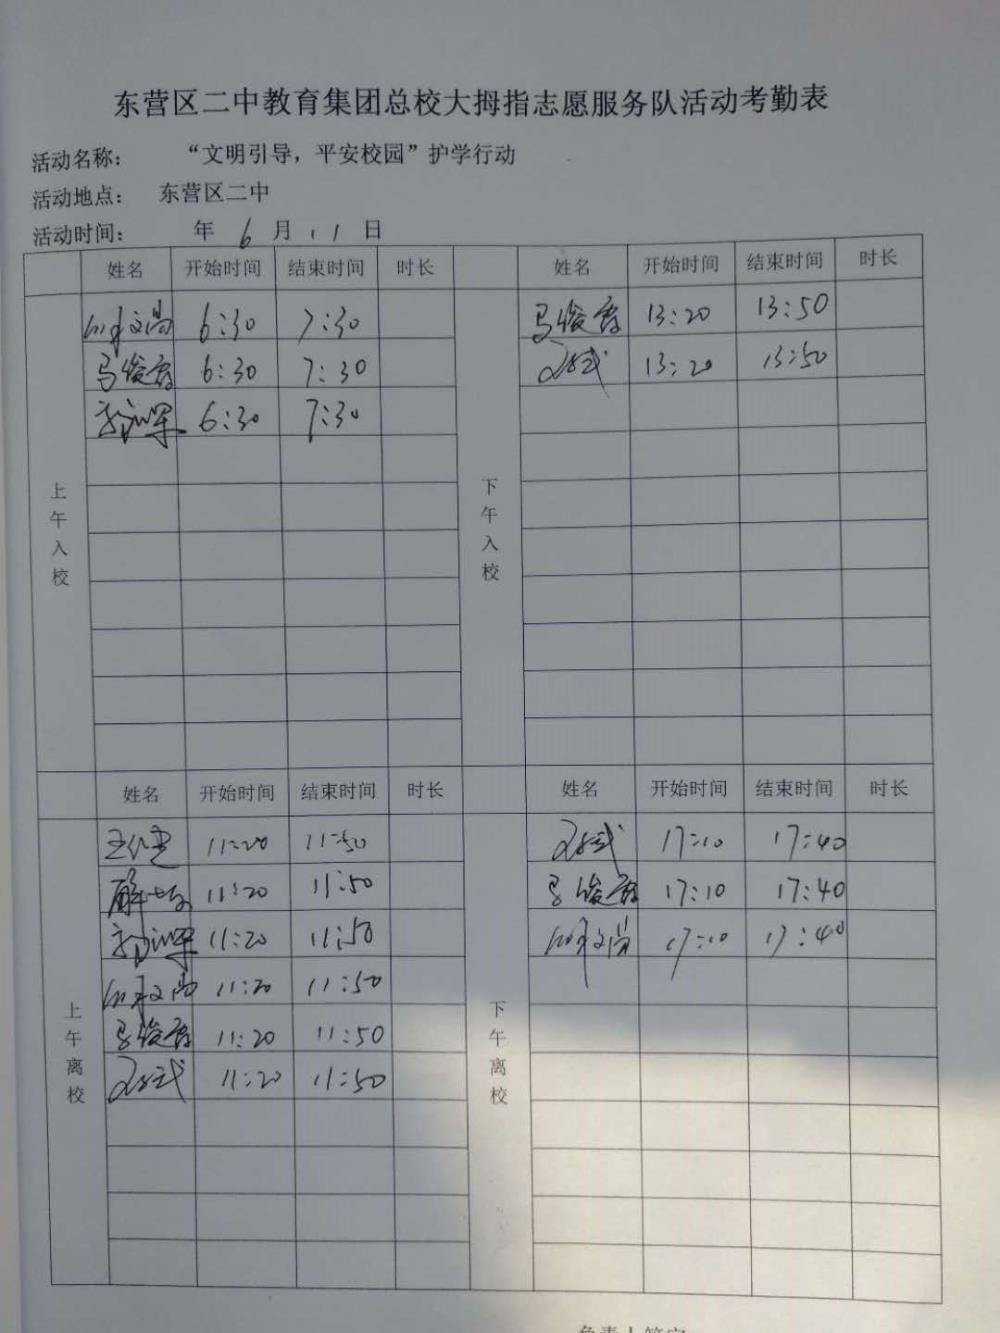 东营区二中教育集团总校大拇指志愿服务队活动考勤表
活动名称： “文明引导，平安校园”护学行动
活动地点： 东营区二中
活动时间： 年 6 月 11 日
姓名 开始时间 结束时间 时长 姓名 开始时间 结束时间 时长
上午入校
6:30 7:30
马俊霞 6:30 7:30
6:30 7:30
下午入校
马俊霞 13:20 13:50
13:20 13:50
姓名 开始时间 结束时间 时长 姓名 开始时间 结束时间 时长
上午离校
11:20 11:50
11:20 11:50
11:20 11:50
11:20 11:50
马俊霞 11:20 11:50
11:20 11:50
下午离校
17:10 17:40
马俊霞 17:10 17:40
17:10 17:40
负责人签字